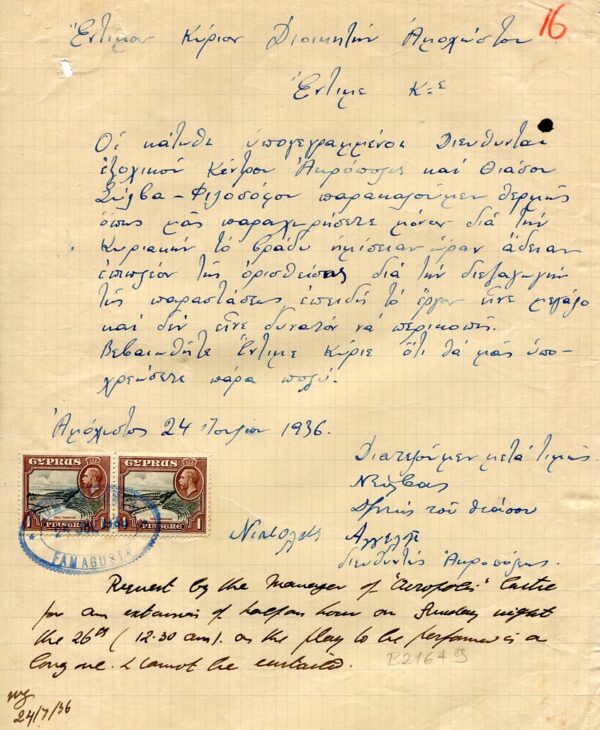 16
Έντιμον Κύριον Διοικητήν Αμοχώστου
Έντιμε Κ=ε
Οι κάτωθι υπογεγραμμένοι Διευθυνταί
εξοχικού Κέντρου Ακρόπολις και Θιάσου
Σύλβα - Φιλοσόφου παρακαλούμεν θερμώς
όπως μας παραχωρήσετε μόνον διά την
Κυριακήν το βράδυ ημίσειαν ώραν άδειαν
επιπλέον της ορισθείσης διά την διεξαγωγήν
της παραστάσεως επειδή το έργον είνε μεγάλο
και δεν είνε δυνατόν να περικοπή.
Βεβαιωθήτε Έντιμε Κύριε ότι θα μας υπο-
χρεώσετε πάρα πολύ.
Αμόχωστος 24 Ιουλίου 1936.
Διατελούμεν μετά τιμής
Δ)ντής του θιάσου
διευθυντής Ακροπόλεως
CYPRUS CYPRUS
1 PIASTRE PIASTRE 1
FAMAGUSTA
Request by the Manager of 'Acropolis' Centre
for an extension of half an hour on Sunday night
the 26th (12.30 am). as the play to be performed is a
long one & cannot be curtailed.
B2164
24/7/36